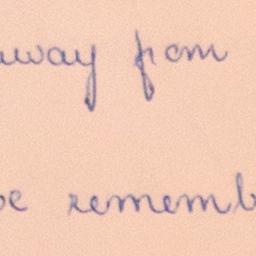 away from
be rememb